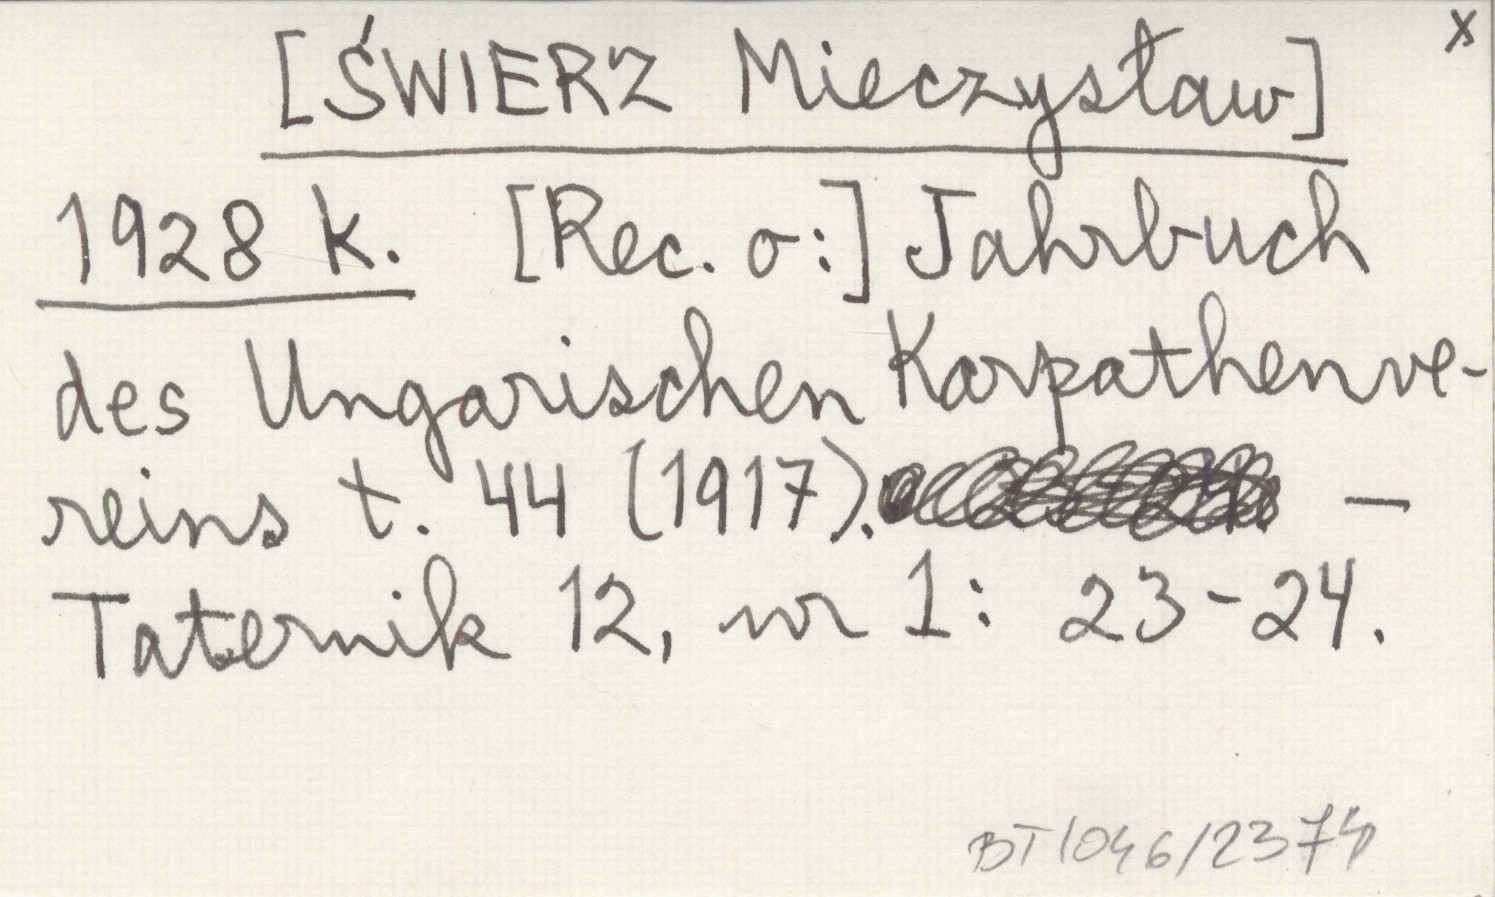 [ŚWIERZ Mieczysław] x
1928 k. [Rec. o:] Jahrbuch
des Ungarischen Karpathenve-
reins t. 44 (1917). —
Taternik 12, nr 1: 23-24.
BT1046/2374